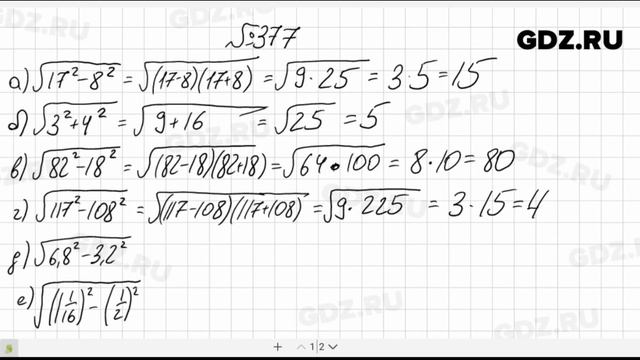 №377
GDZ.RU
а) √(17² − 8²) = √((17-8)(17+8)) = √(9·25) = 3·5 = 15
б) √(3² + 4²) = √(9 + 16) = √25 = 5
в) √(82² − 18²) = √((82-18)(82+18)) = √(64·100) = 8·10 = 80
г) √(117² − 108²) = √((117-108)(117+108)) = √(9·225) = 3·15 = 4
д) √(6,8² − 3,2²)
е) √((1 1/16)² − (1/2)²)
+ 1|2